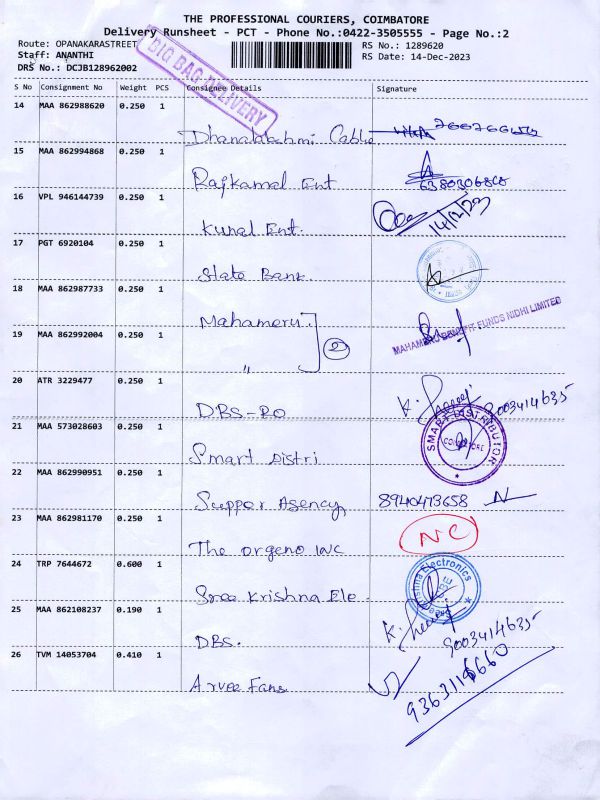 THE PROFESSIONAL COURIERS, COIMBATORE
Delivery Runsheet - PCT - Phone No.:0422-3505555 - Page No.:2
Route: OPANAKARASTREET
RS No.: 1289620
Staff: ANANTHI
RS Date: 14-Dec-2023
DRS No.: DCJB128962002
BIG BAG DELIVERY
S No Consignment No Weight PCS Consignee Details Signature
14 MAA 862988620 0.250 1
Dhanalakshmi Cable
15 MAA 862994868 0.250 1
Rajkamal Ent
6380306868
16 VPL 946144739 0.250 1
Kunal Ent.
14/12/23
17 PGT 6920104 0.250 1
State Bank
18 MAA 862987733 0.250 1
Mahameru
2
MAHAMERU BENEFIT FUNDS NIDHI LIMITED
19 MAA 862992004 0.250 1
"
20 ATR 3229477 0.250 1
DBS-RO
9003414635
21 MAA 573028603 0.250 1
Smart Distri
SMART DISTRIBUTOR
COIMBATORE
22 MAA 862990951 0.250 1
Supper Agency
8940473658
23 MAA 862981170 0.250 1
The orgeno inc
NC
24 TRP 7644672 0.600 1
Sree Krishna Ele
Krishna Electronics
25 MAA 862108237 0.190 1
DBS.
9003414635
26 TVM 14053704 0.410 1
Arvee Fans
9363116660